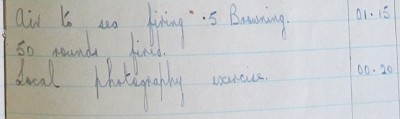 Air to sea firing" .5 Browning. 01.15
50 rounds fired.
Local photography exercise. 00.20